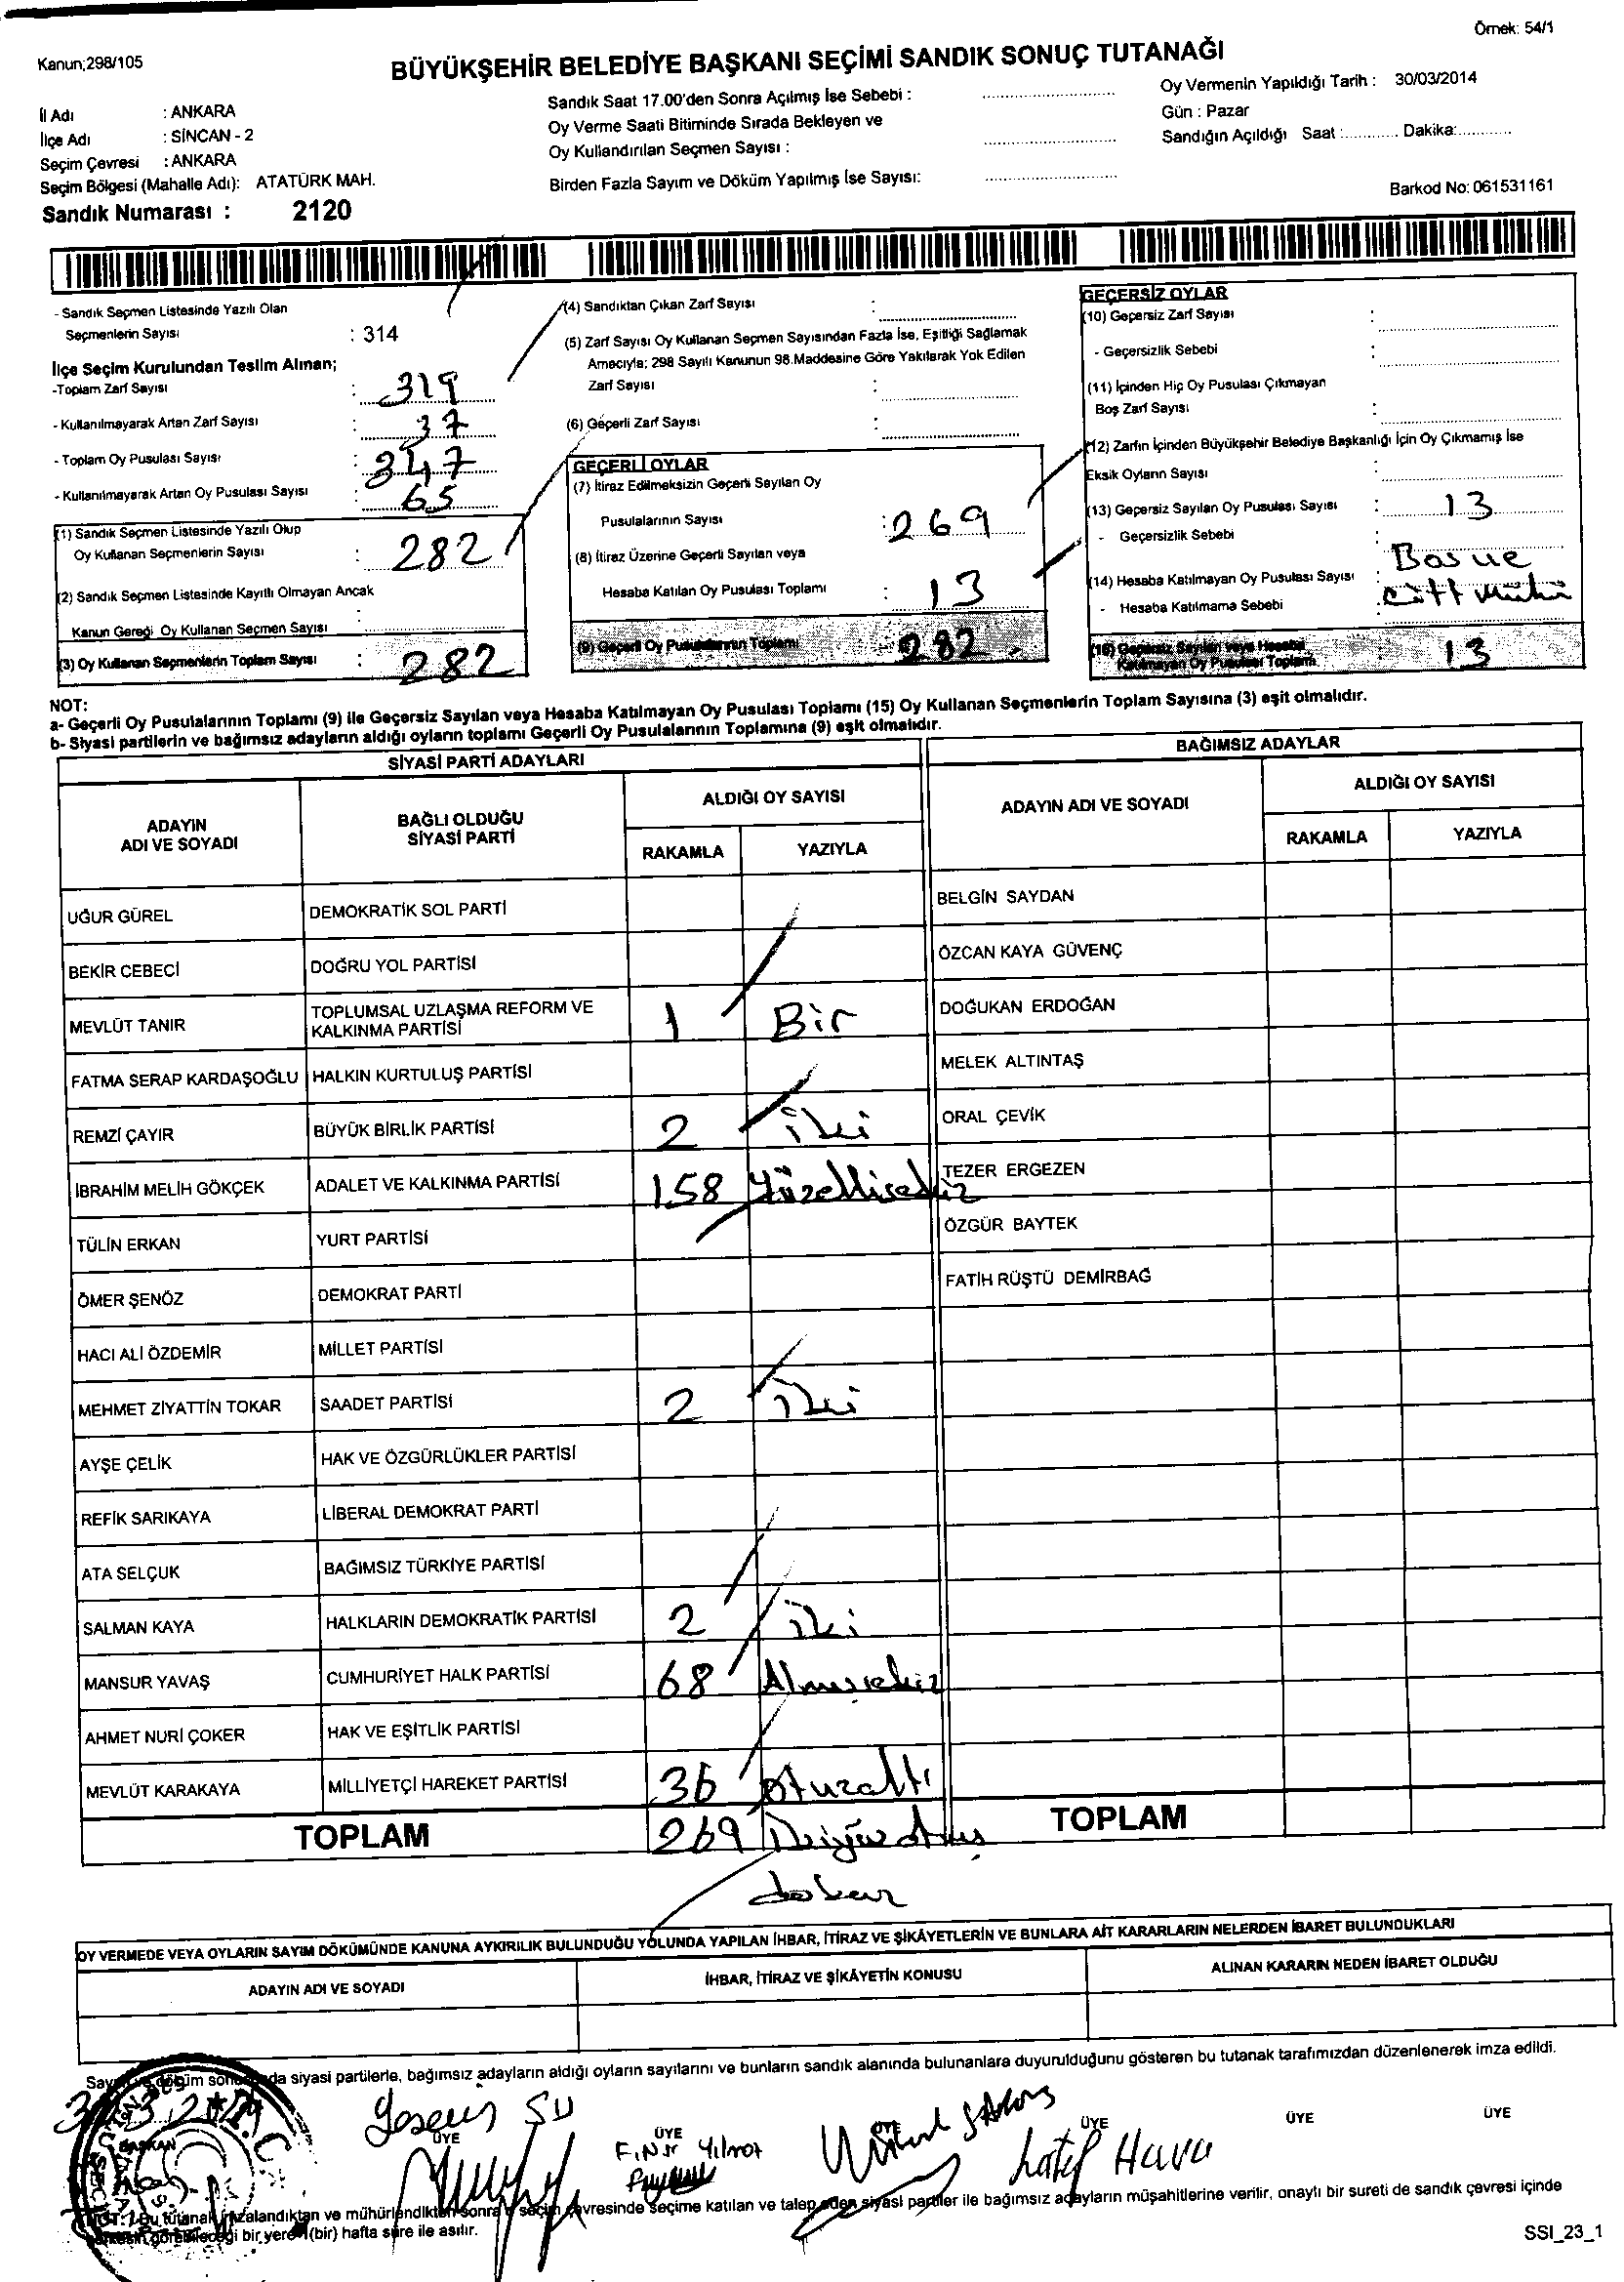 Örnek: 54/1
Kanun;298/105
BÜYÜKŞEHİR BELEDİYE BAŞKANI SEÇİMİ SANDIK SONUÇ TUTANAĞI
İl Adı : ANKARA
İlçe Adı : SİNCAN - 2
Seçim Çevresi : ANKARA
Seçim Bölgesi (Mahalle Adı): ATATÜRK MAH.
Sandık Numarası : 2120
Sandık Saat 17.00'den Sonra Açılmış İse Sebebi :
Oy Verme Saati Bitiminde Sırada Bekleyen ve
Oy Kullandırılan Seçmen Sayısı :
Birden Fazla Sayım ve Döküm Yapılmış İse Sayısı:
Oy Vermenin Yapıldığı Tarih : 30/03/2014
Gün : Pazar
Sandığın Açıldığı Saat :............ Dakika:...........
Barkod No: 061531161
- Sandık Seçmen Listesinde Yazılı Olan
Seçmenlerin Sayısı : 314
İlçe Seçim Kurulundan Teslim Alınan;
-Toplam Zarf Sayısı : 319
- Kullanılmayarak Artan Zarf Sayısı : 37
- Toplam Oy Pusulası Sayısı : 347
- Kullanılmayarak Artan Oy Pusulası Sayısı : 65
(1) Sandık Seçmen Listesinde Yazılı Olup
Oy Kullanan Seçmenlerin Sayısı : 282
(2) Sandık Seçmen Listesinde Kayıtlı Olmayan Ancak
Kanun Gereği Oy Kullanan Seçmen Sayısı :
(3) Oy Kullanan Seçmenlerin Toplam Sayısı : 282
(4) Sandıktan Çıkan Zarf Sayısı :
(5) Zarf Sayısı Oy Kullanan Seçmen Sayısından Fazla İse, Eşitliği Sağlamak
Amacıyla; 298 Sayılı Kanunun 98.Maddesine Göre Yakılarak Yok Edilen
Zarf Sayısı :
(6) Geçerli Zarf Sayısı :
GEÇERLİ OYLAR
(7) İtiraz Edilmeksizin Geçerli Sayılan Oy
Pusulalarının Sayısı : 269
(8) İtiraz Üzerine Geçerli Sayılan veya
Hesaba Katılan Oy Pusulası Toplamı : 13
(9) Geçerli Oy Pusulalarının Toplamı : 282
GEÇERSİZ OYLAR
(10) Geçersiz Zarf Sayısı :
- Geçersizlik Sebebi :
(11) İçinden Hiç Oy Pusulası Çıkmayan
Boş Zarf Sayısı :
(12) Zarfın İçinden Büyükşehir Belediye Başkanlığı İçin Oy Çıkmamış İse
Eksik Oyların Sayısı :
(13) Geçersiz Sayılan Oy Pusulası Sayısı : 13
- Geçersizlik Sebebi : Bos ve
(14) Hesaba Katılmayan Oy Pusulası Sayısı : çift mühür
- Hesaba Katılmama Sebebi :
(15) Geçersiz Sayılan veya Hesaba
Katılmayan Oy Pusulası Toplamı 13
NOT:
a- Geçerli Oy Pusulalarının Toplamı (9) ile Geçersiz Sayılan veya Hesaba Katılmayan Oy Pusulası Toplamı (15) Oy Kullanan Seçmenlerin Toplam Sayısına (3) eşit olmalıdır.
b- Siyasi partilerin ve bağımsız adayların aldığı oyların toplamı Geçerli Oy Pusulalarının Toplamına (9) eşit olmalıdır.
SİYASİ PARTİ ADAYLARI
ADAYIN ADI VE SOYADI
BAĞLI OLDUĞU SİYASİ PARTİ
ALDIĞI OY SAYISI
RAKAMLA YAZIYLA
UĞUR GÜREL DEMOKRATİK SOL PARTİ
BEKİR CEBECİ DOĞRU YOL PARTİSİ
MEVLÜT TANIR TOPLUMSAL UZLAŞMA REFORM VE KALKINMA PARTİSİ 1 Bir
FATMA SERAP KARDAŞOĞLU HALKIN KURTULUŞ PARTİSİ
REMZİ ÇAYIR BÜYÜK BİRLİK PARTİSİ 2 iki
İBRAHİM MELİH GÖKÇEK ADALET VE KALKINMA PARTİSİ 158 Yüzellisekiz
TÜLİN ERKAN YURT PARTİSİ
ÖMER ŞENÖZ DEMOKRAT PARTİ
HACI ALİ ÖZDEMİR MİLLET PARTİSİ
MEHMET ZİYATTİN TOKAR SAADET PARTİSİ 2 iki
AYŞE ÇELİK HAK VE ÖZGÜRLÜKLER PARTİSİ
REFİK SARIKAYA LİBERAL DEMOKRAT PARTİ
ATA SELÇUK BAĞIMSIZ TÜRKİYE PARTİSİ
SALMAN KAYA HALKLARIN DEMOKRATİK PARTİSİ 2 iki
MANSUR YAVAŞ CUMHURİYET HALK PARTİSİ 68 Atmışsekiz
AHMET NURİ ÇOKER HAK VE EŞİTLİK PARTİSİ
MEVLÜT KARAKAYA MİLLİYETÇİ HAREKET PARTİSİ 36 otuzaltı
TOPLAM 269 İkiyüz atmış
dokuz
BAĞIMSIZ ADAYLAR
ADAYIN ADI VE SOYADI
ALDIĞI OY SAYISI
RAKAMLA YAZIYLA
BELGİN SAYDAN
ÖZCAN KAYA GÜVENÇ
DOĞUKAN ERDOĞAN
MELEK ALTINTAŞ
ORAL ÇEVİK
TEZER ERGEZEN
ÖZGÜR BAYTEK
FATİH RÜŞTÜ DEMİRBAĞ
TOPLAM
OY VERMEDE VEYA OYLARIN SAYIM DÖKÜMÜNDE KANUNA AYKIRILIK BULUNDUĞU YOLUNDA YAPILAN İHBAR, İTİRAZ VE ŞİKÂYETLERİN VE BUNLARA AİT KARARLARIN NELERDEN İBARET BULUNDUKLARI
ADAYIN ADI VE SOYADI
İHBAR, İTİRAZ VE ŞİKÂYETİN KONUSU
ALINAN KARARIN NEDEN İBARET OLDUĞU
siyasi partilerle, bağımsız adayların aldığı oyların sayılarını ve bunların sandık alanında bulunanlara duyurulduğunu gösteren bu tutanak tarafımızdan düzenlenerek imza edildi.
BAŞKAN ÜYE ÜYE ÜYE ÜYE ÜYE
F.Nur Yılmaz
Latif Hava
tutanak imzalandıktan ve mühürlendikten sonra seçim çevresinde seçime katılan ve talep eden siyasi partiler ile bağımsız adayların müşahitlerine verilir, onaylı bir sureti de sandık çevresi içinde
bir yere (bir) hafta süre ile asılır.
SSI_23_1